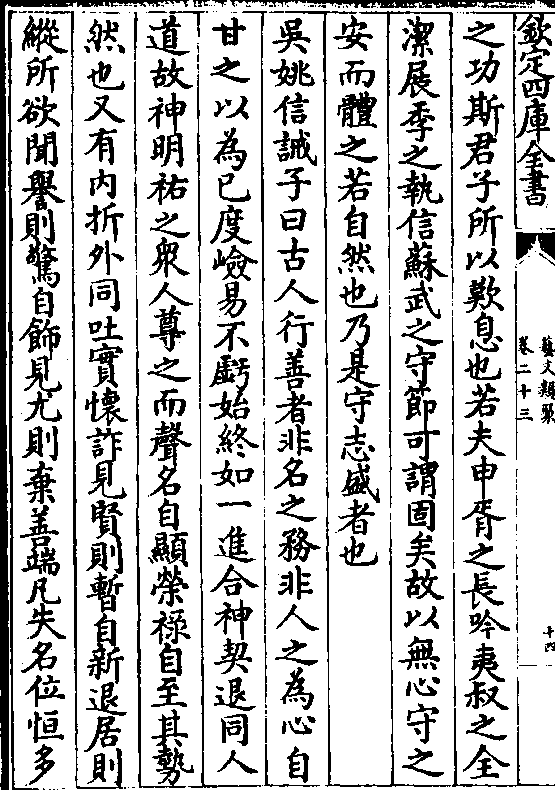 欽定四庫全書
藝文類聚
卷二十三
十四
之功斯君子所以歎息也若夫申胥之長吟夷叔之全
潔展季之執信蘇武之守節可謂固矣故以無心守之
安而體之若自然也乃是守志盛者也
吳姚信誡子曰古人行善者非名之務非人之為心自
甘之以為已度嶮易不虧始終如一進合神契退同人
道故神明祐之衆人尊之而聲名自顯榮祿自至其勢
然也又有内折外同吐實懷詐見賢則暫自新退居則
縱所欲聞譽則驚自飾見尤則棄善端凡失名位恒多